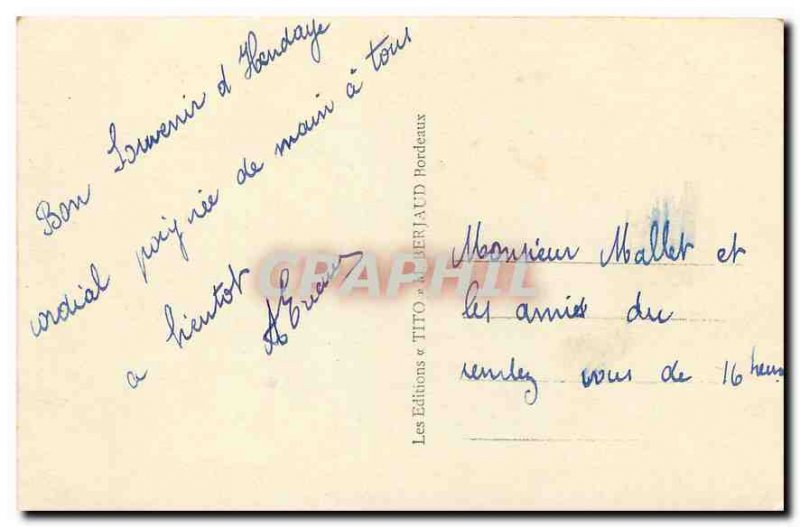 Bon Souvenir d'Hendaye
cordial poignée de main à tous
a bientot
Les Editions « TITO » M BERJAUD Bordeaux
CRAPHIL
Monsieur Mallet et
les amies du
rendez vous de 16 heures